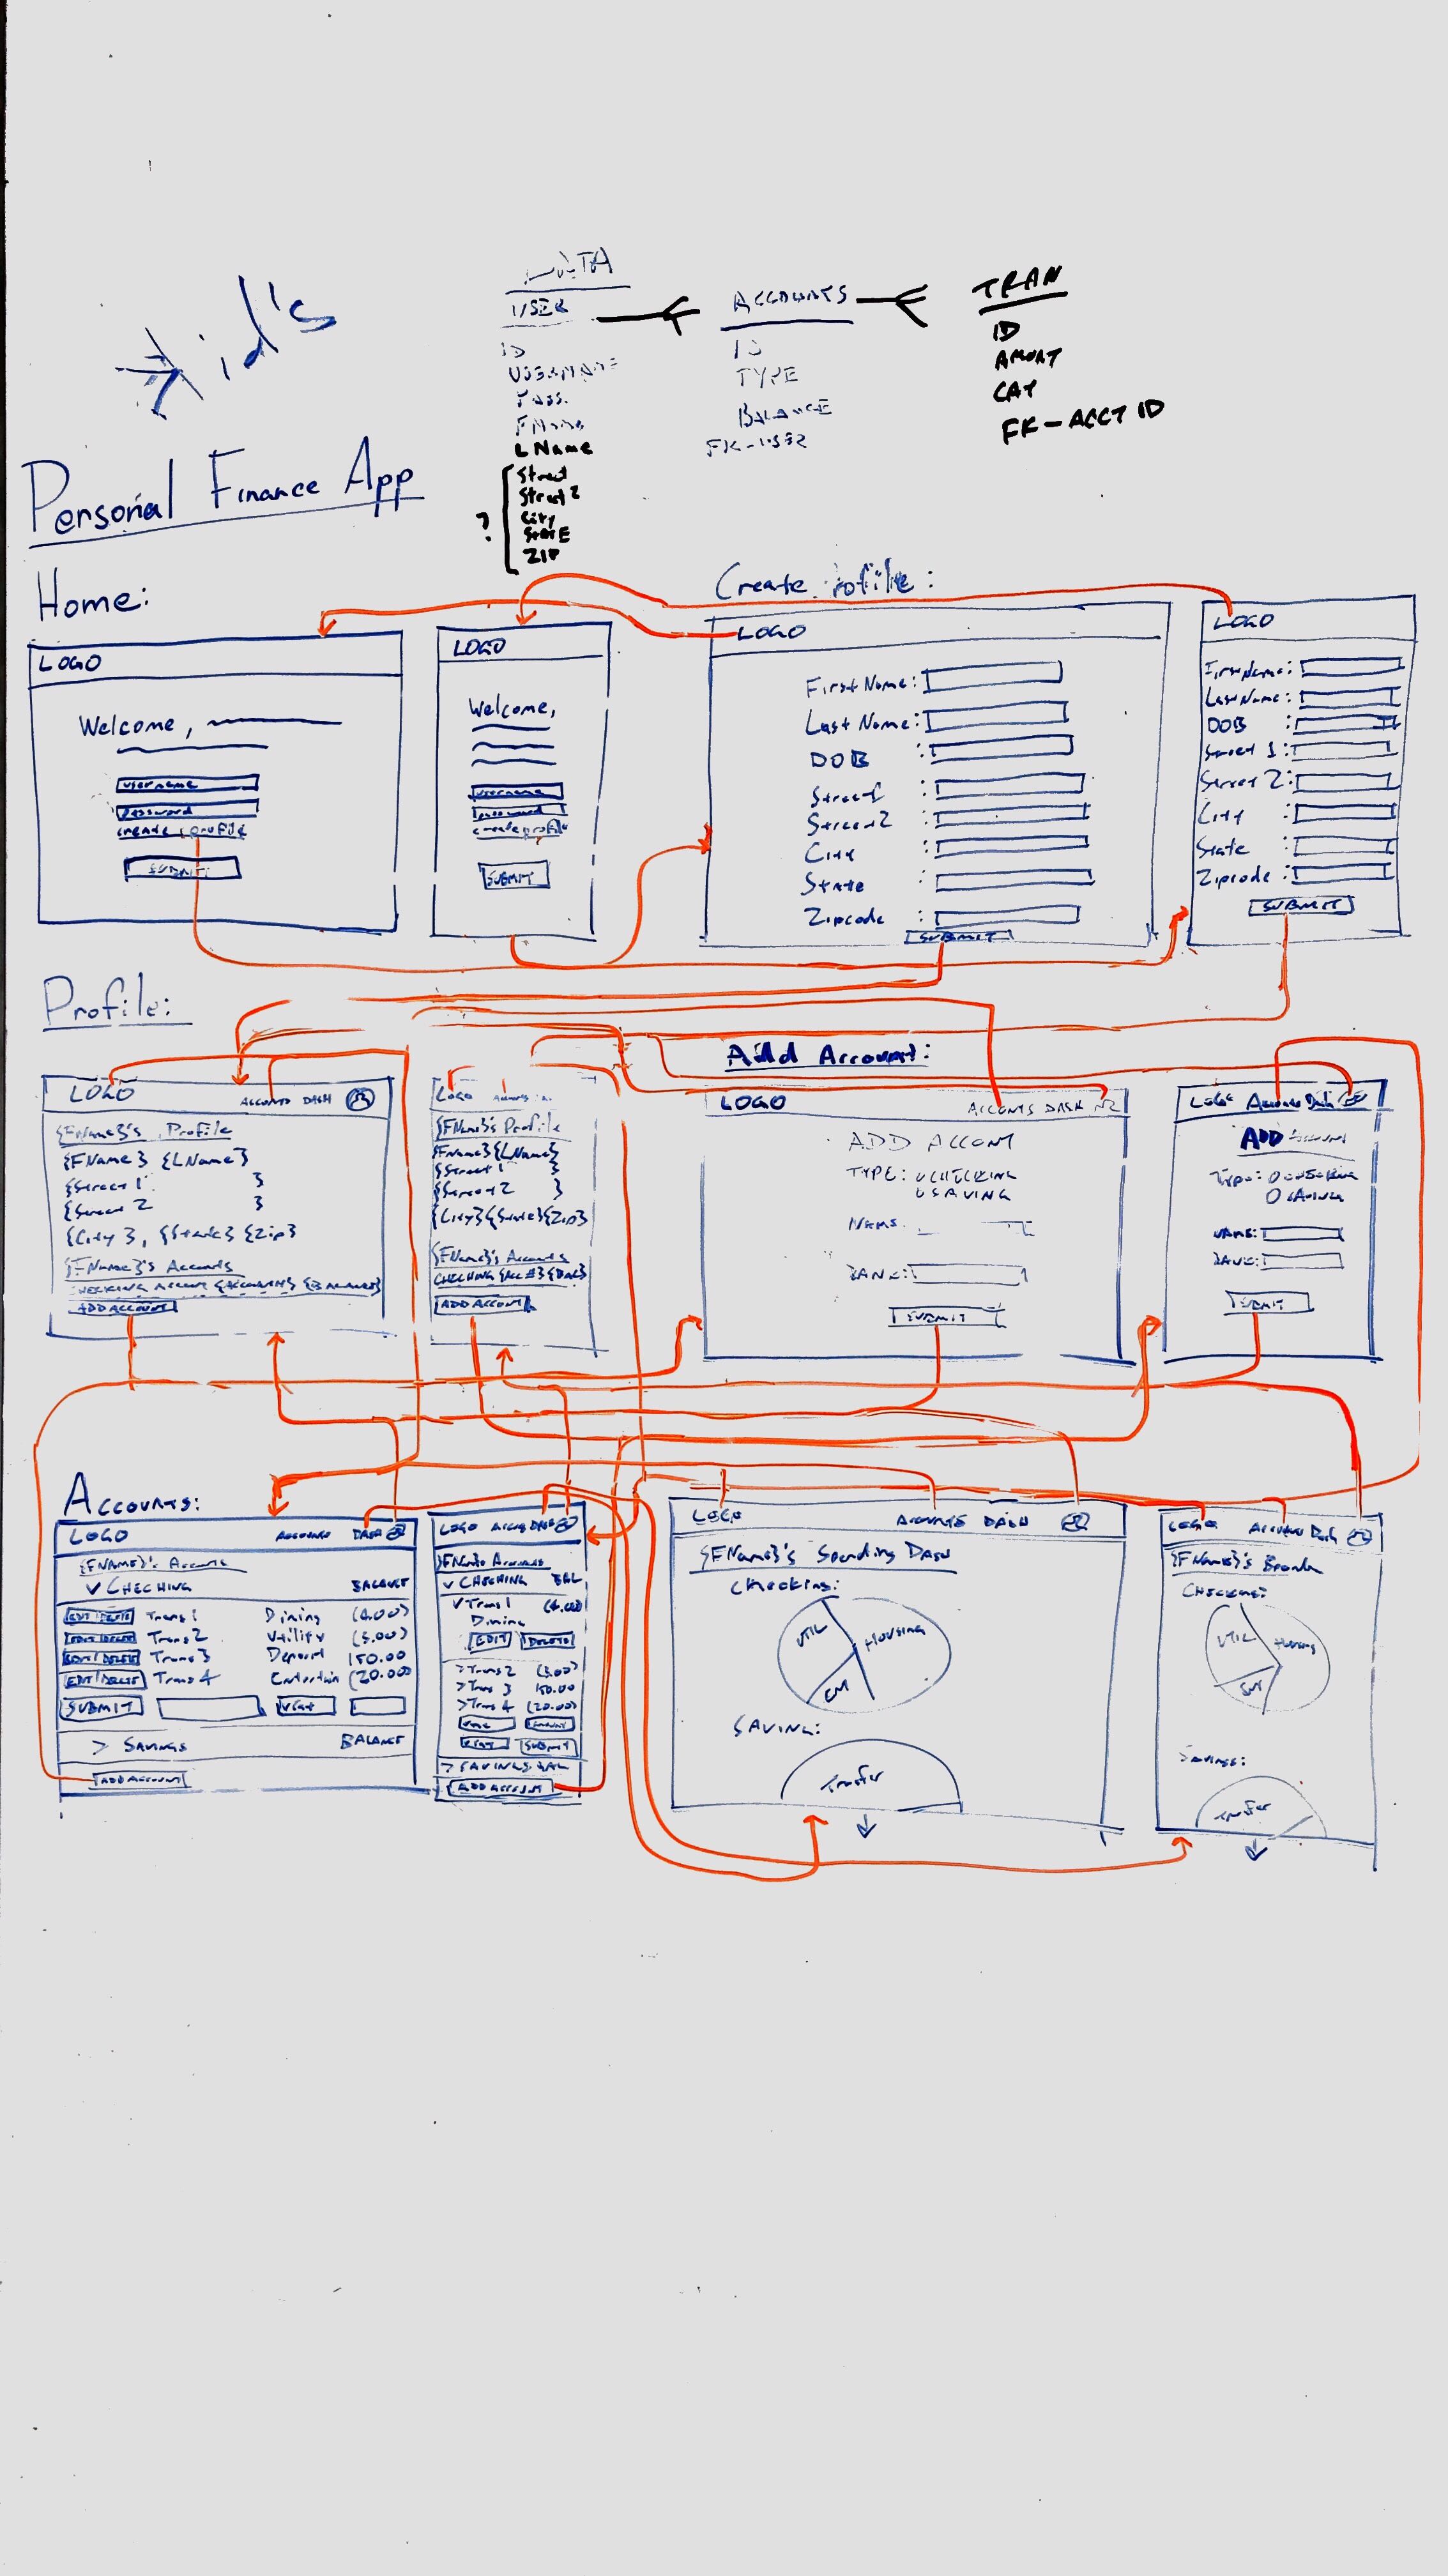 id's
DATA
USER
ID
USERNAME
PASS.
FName
LName
Street
Street 2
City
State
ZIP
?
ACCOUNTS
ID
TYPE
BALANCE
FK-USER
TRAN
ID
CAT
FK-ACCT ID
Personal Finance App
Home:
LOGO
Welcome,
username
password
create profile
SUBMIT
LOGO
Welcome,
username
password
create profile
SUBMIT
Create Profile:
LOGO
First Name:
Last Name:
DOB :
Street 1 :
Street 2 :
City :
State :
Zipcode :
SUBMIT
LOGO
First Name:
Last Name:
DOB :
Street 1:
Street 2:
City :
State :
Zipcode:
SUBMIT
Profile:
LOGO DASH
{FName}'s Profile
{FName} {LName}
{Street 1 }
{Street 2 }
{City}, {State} {Zip}
{FName}'s Accounts
ADD ACCOUNT
LOGO
{FName}'s Profile
{FName} {LName}
{Street 1 }
{Street 2 }
{City} {State} {Zip}
{FName}'s Accounts
CHECKING {Acc #} {Bal}
ADD ACCOUNT
Add Account:
LOGO ACCONTS DASH
ADD ACCONT
TYPE: O CHECKING
O SAVING
NAME:
BANK:
SUBMIT
LOGO Accounts Dash
ADD
Type: O CHECKING
O SAVING
NAME:
BANK:
SUBMIT
ACCOUNTS:
LOGO ACCOUNTS DASH
{FNAME}'s Accounts
v CHECHING BALANCE
EDIT DELETE Trans 1 Dining (4.00)
EDIT DELETE Trans 2 Utility (5.00)
EDIT DELETE Trans 3 Deposit 150.00
EDIT DELETE Trans 4 (20.00)
SUBMIT
> SAVINGS BALANCE
ADD ACCOUNT
LOGO DASH
{FName}'s Accounts
v CHECHING BAL
v Trans 1 (4.00)
Dining
EDIT DELETE
> Trans 2 (5.00)
> Trans 3 150.00
> Trans 4 (20.00)
SUBMIT
> SAVINGS BAL
ADD ACCOUNT
LOGO ACCOUNTS DASH
{FName}'s Spending DASH
Checking:
UTIL
HOUSING
ENT
SAVING:
Transfer
LOGO Accounts Dash
CHECKING:
UTIL
Housing
ENT
SAVINGS: